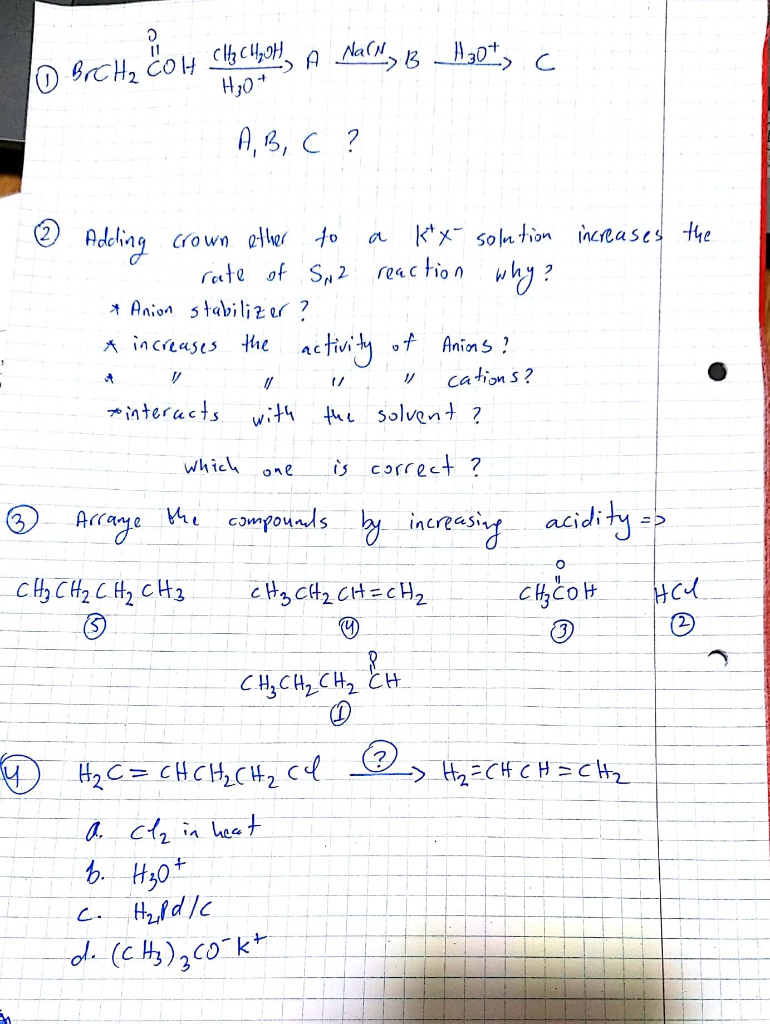 ① BrCH₂COH (O double-bonded above C) CH₃CH₂OH / H₃O⁺ → A NaCN → B H₃O⁺ → C
A, B, C ?
② Adding crown ether to a K⁺X⁻ solution increases the
rate of SN2 reaction why?
* Anion stabilizer?
* increases the activity of Anions?
* " " " " cations?
* interacts with the solvent?
which one is correct?
③ Arrange the compounds by increasing acidity =>
O
CH₃CH₂CH₂CH₃ CH₃CH₂CH=CH₂ CH₃COH HCl
⑤ ④ ③ ②
O
CH₃CH₂CH₂CH
①
④ H₂C=CHCH₂CH₂Cl ? → H₂=CHCH=CH₂
a. Cl₂ in heat
b. H₃O⁺
c. H₂Pd/C
d. (CH₃)₃CO⁻K⁺